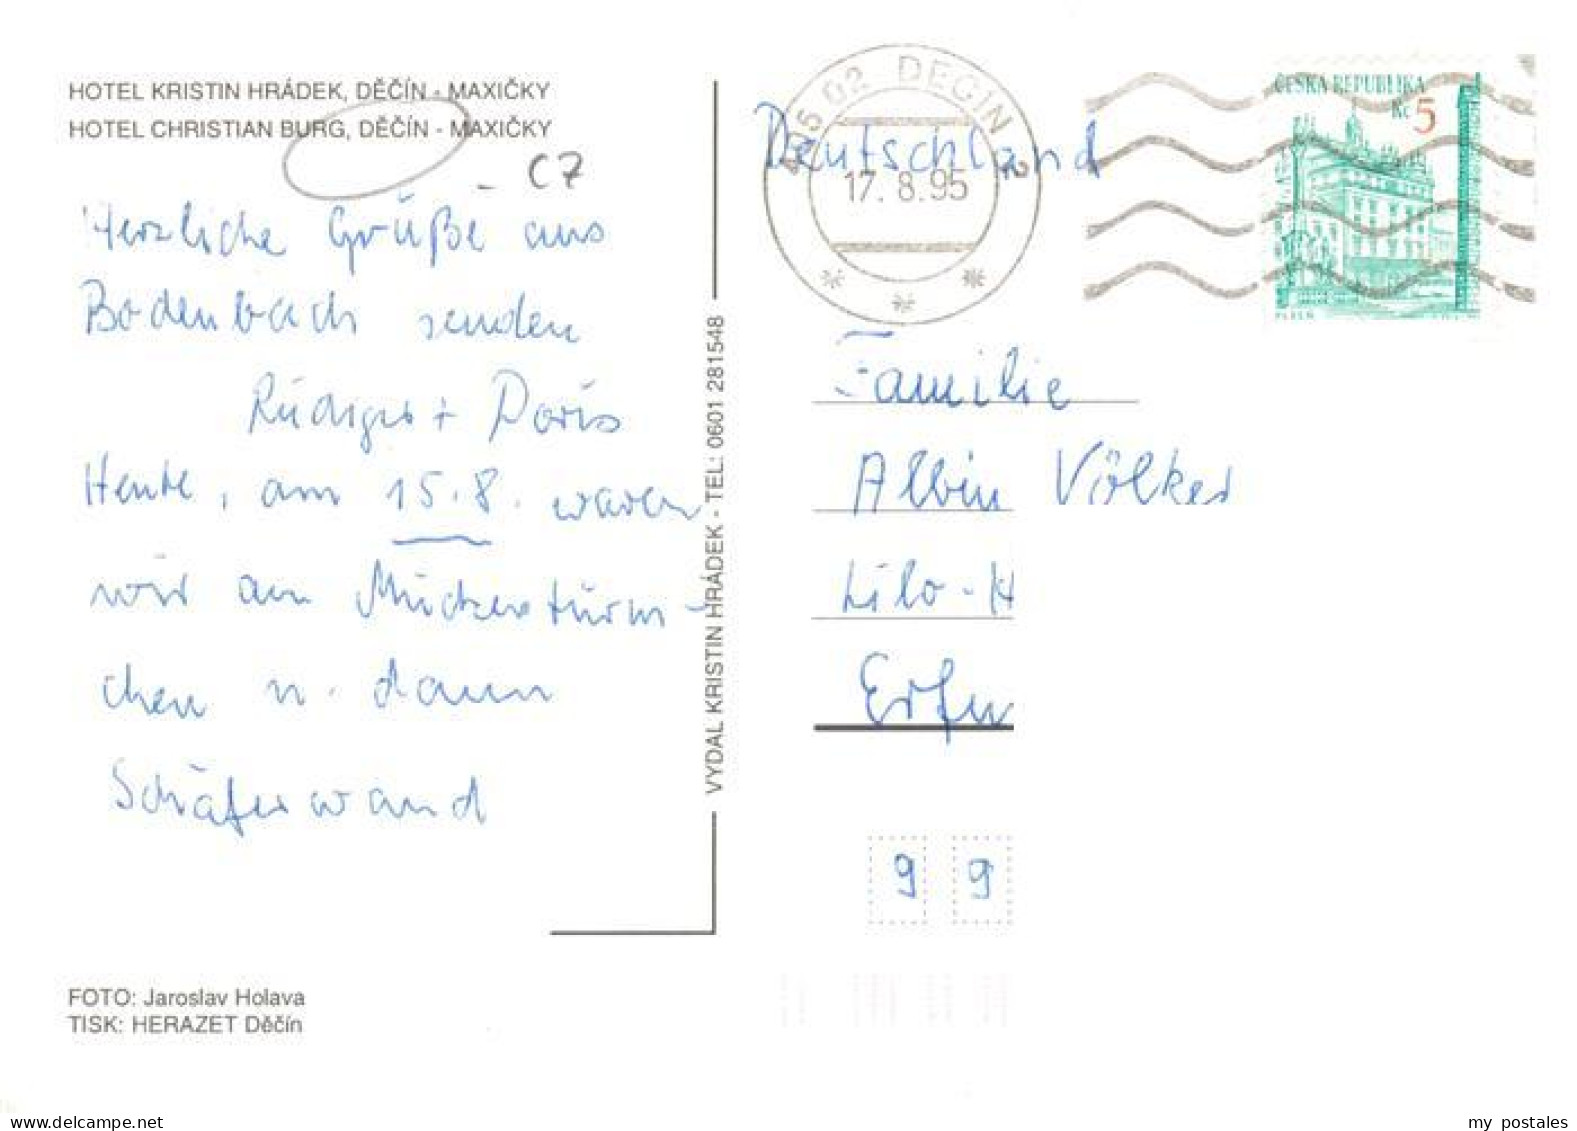 HOTEL KRISTIN HRÁDEK, DĚČÍN - MAXIČKY
HOTEL CHRISTIAN BURG, DĚČÍN - MAXIČKY
CZ
Herzliche Grüße aus
Bodenbach senden
Rüdiger + Doris
Heute, am 15.8. waren
wir am Mückentürm-
chen u. dann
Schäferwand
FOTO: Jaroslav Holava
TISK: HERAZET Děčín
VYDAL KRISTIN HRÁDEK - TEL: 0601 281548
405 02 DĚČÍN 2
17. 8. 95
ČESKÁ REPUBLIKA
Kč 5
PLZEŇ
Deutschland
Familie
Albin Völker
Lilo-H
Erfu
9 9
www.delcampe.net
my_postales